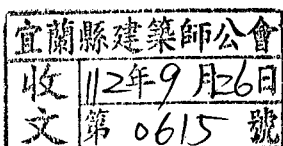 宜蘭縣建築師公會
收文
112年9月26日
第0615號